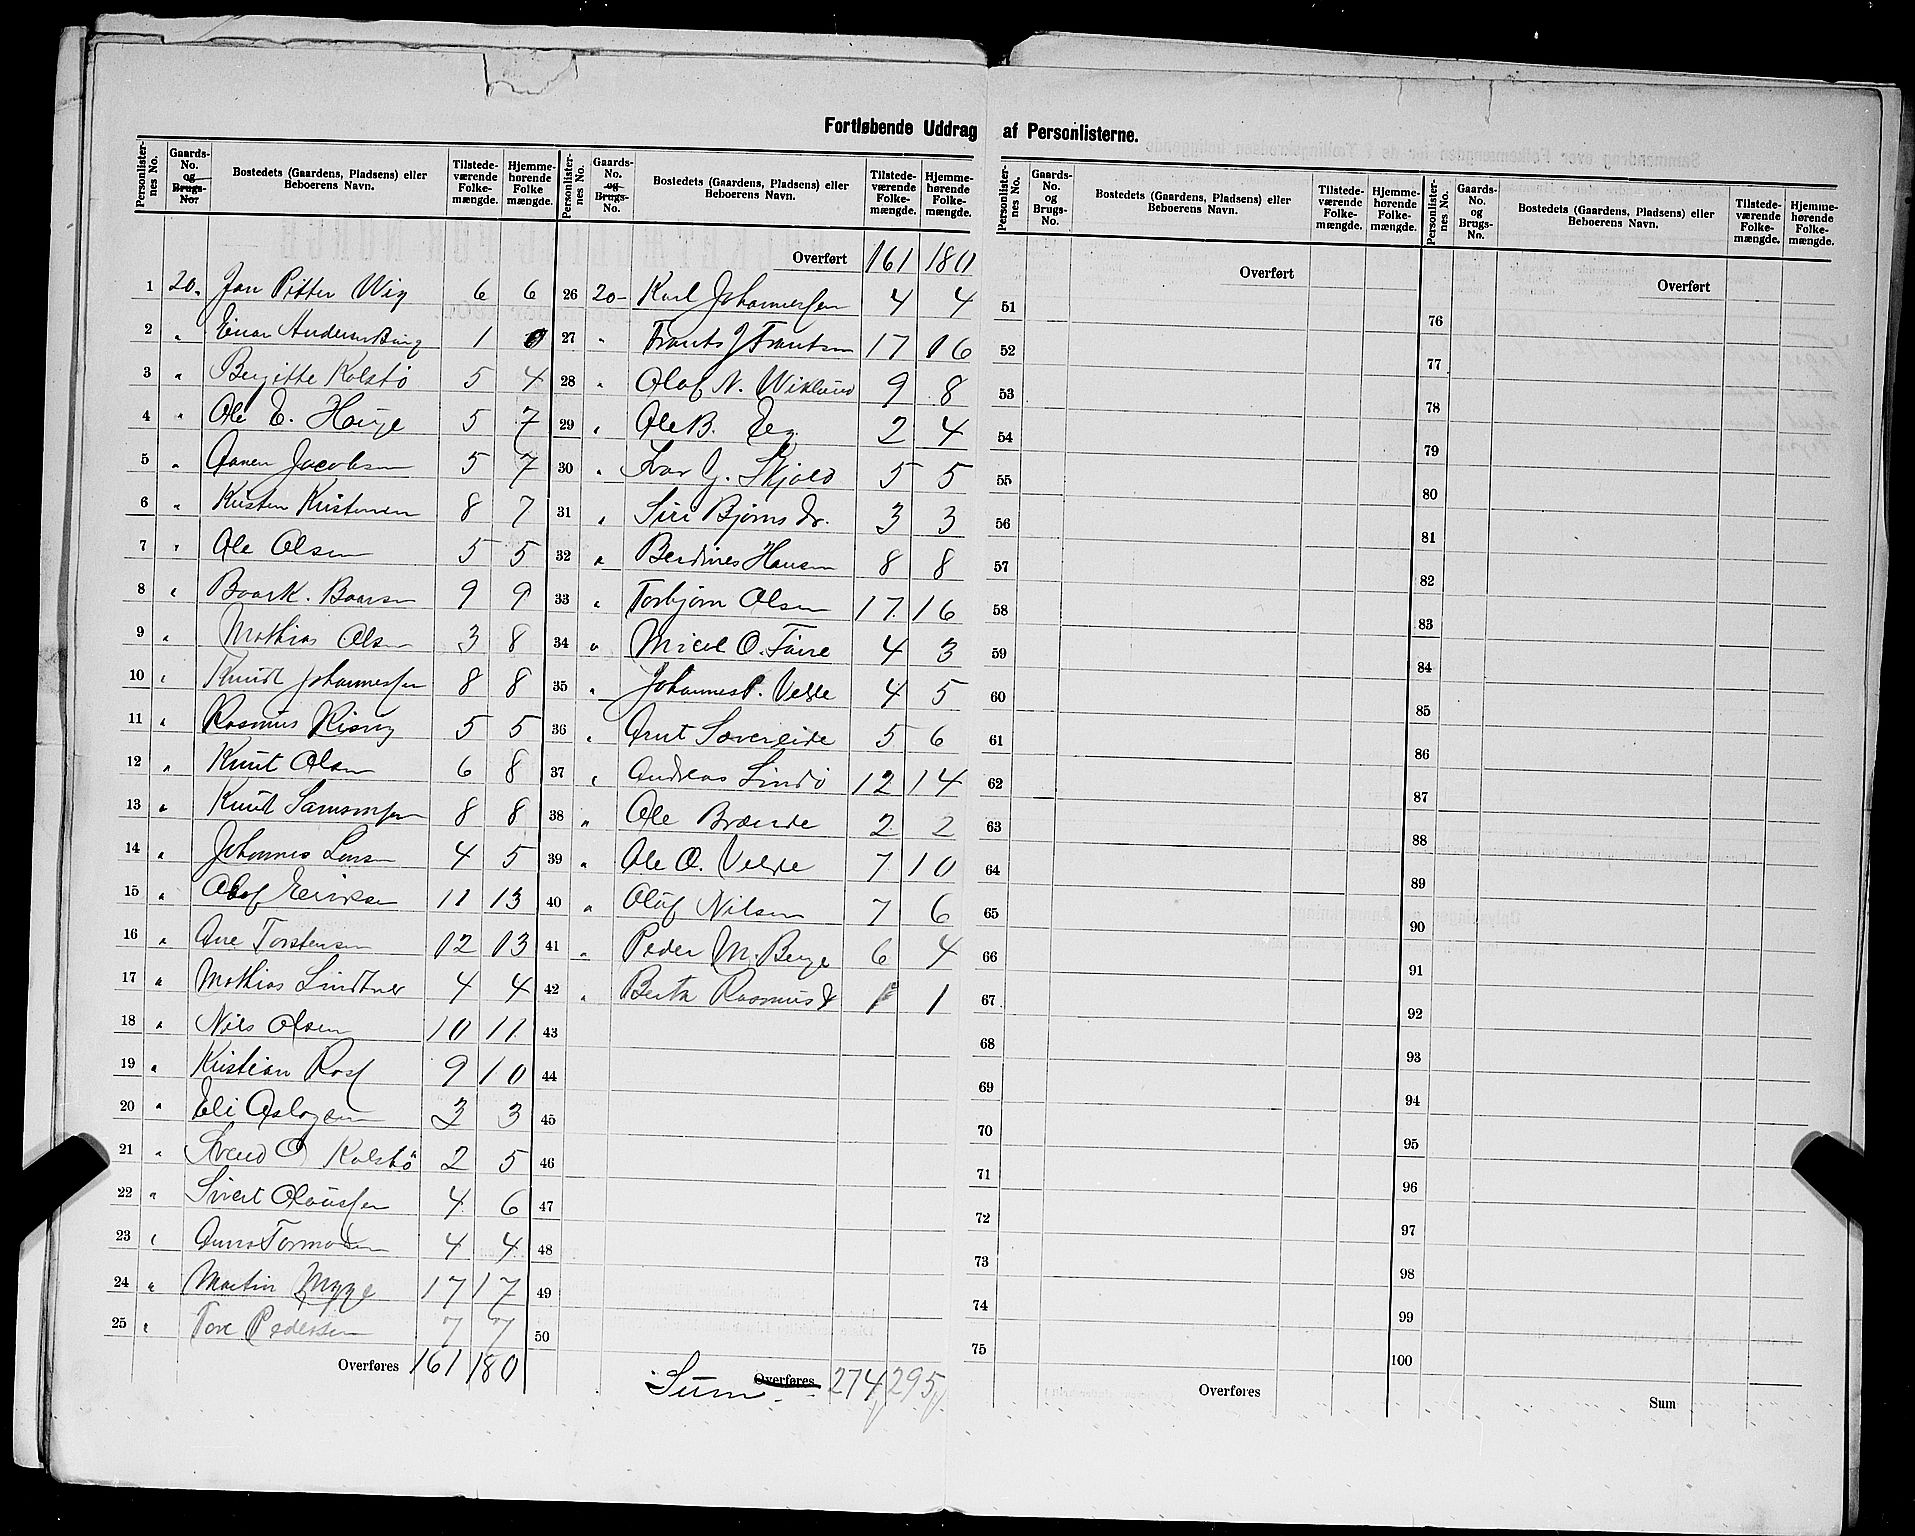 Fortløbende Uddrag af Personlisterne.
Personlister-nes No. Gaards-No. og Brugs-No. Bostedets (Gaardens, Pladsens) eller Beboerens Navn. Tilstede-værende Folke-mængde. Hjemme-hørende Folke mængde.
1 20 Jan Pitter Wig 6 6
2 " Einar Andersen Bing 1 0
3 " Bergitte Kolstö 5 4
4 " Ole E. Hauge 5 7
5 " Aanen Jacobsen 5 7
6 " Kristen Kristensen 8 7
7 " Ole Olsen 5 5
8 " Baar K. Baarsen 9 9
9 " Mathias Olsen 3 8
10 " Knudt Johannessen 8 8
11 " Rasmus 5 5
12 " Knut Olsen 6 8
13 " Knut Samsonsen 8 8
14 " Johannes Larsen 4 5
15 " Olaf Eriksen 11 13
16 " Ane Torstensen 12 13
17 " Mathias Lindtner 4 4
18 " Nils Olsen 10 11
19 " Kristian Rosf 9 10
20 " Eli Aslagsen 3 3
21 " Svend O Kolstö 2 5
22 " Sivert Olaussen 4 6
23 " Anna Tormodsen 4 4
24 " Martin Mygge 17 17
25 " Tore Pedersen 7 7
Overføres 161 180
Personlister-nes No. Gaards-No. og Brugs-No. Bostedets (Gaardens, Pladsens) eller Beboerens Navn. Tilstede-værende Folke-mængde. Hjemme-hørende Folke-mængde.
Overført 161 180
26 20 Karl Johannessen 4 4
27 " Frants J Frantsen 17 16
28 " Olaf N. Wiklund 9 8
29 " Ole B. Eeg 2 4
30 " Ivar G. Skjold 5 5
31 " Siri Bjørnsdr. 3 3
32 " Berdines Hansen 8 8
33 " Torbjörn Olsen 17 16
34 " Micel O. 4 3
35 " Johannes P. Velde 4 5
36 " Arnt Sævereide 5 6
37 " Andreas Lindö 12 14
38 " Ole Brænde 2 2
39 " Ole O. Velde 7 10
40 " Oluf Nilsen 7 6
41 " Peder M. Berge 6 4
42 " Berta Rasmusd 1 1
43
44
45
46
47
48
49
50
Sum Overføres 274 295
Personlister-nes No. Gaards-No. og Brugs-No. Bostedets (Gaardens, Pladsens) eller Beboerens Navn. Tilstede-værende Folke-mængde. Hjemme-hørende Folke-mængde.
Overført
51
52
53
54
55
56
57
58
59
60
61
62
63
64
65
66
67
68
69
70
71
72
73
74
75
Overføres
Personlister-nes No. Gaards-No. og Brugs-No. Bostedets (Gaardens, Pladsens) eller Beboerens Navn. Tilstede-værende Folke-mængde. Hjemme-hørende Folke-mængde.
Overført
76
77
78
79
80
81
82
83
84
85
86
87
88
89
90
91
92
93
94
95
96
97
98
99
100
Sum